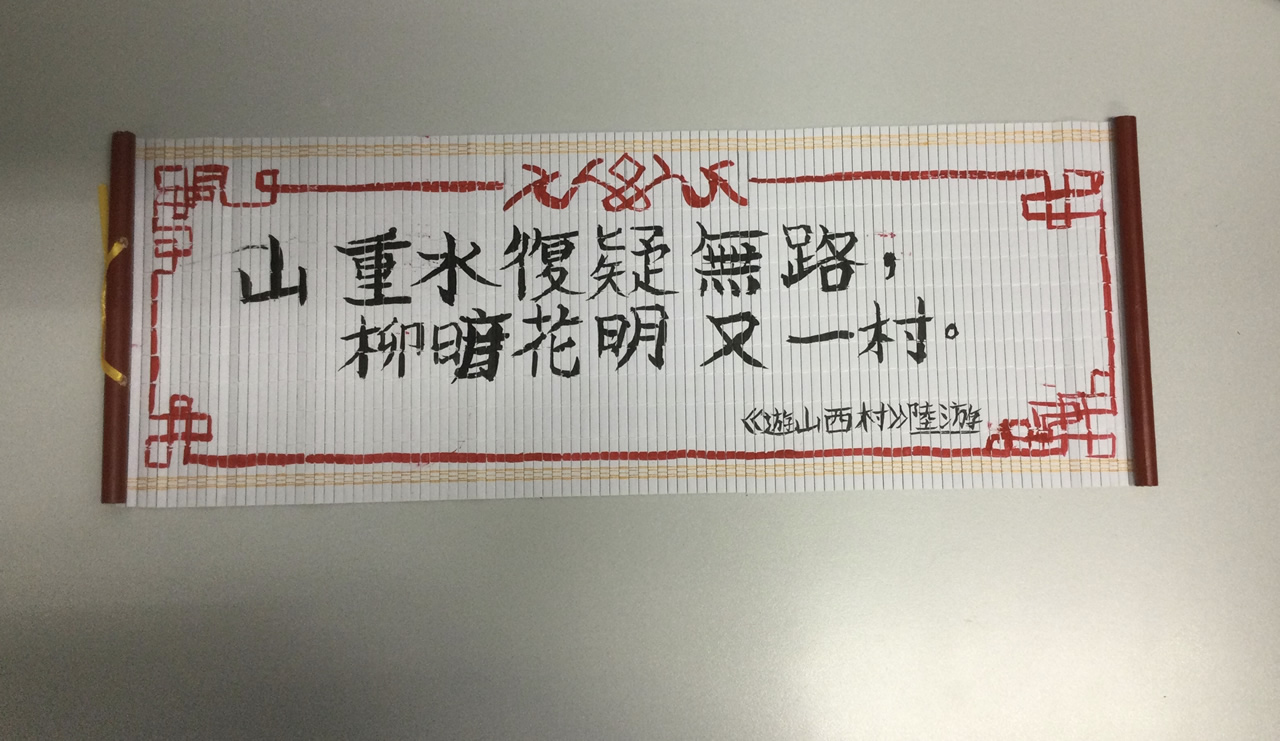 山重水復疑無路；
柳暗花明又一村。
《遊山西村》陸游